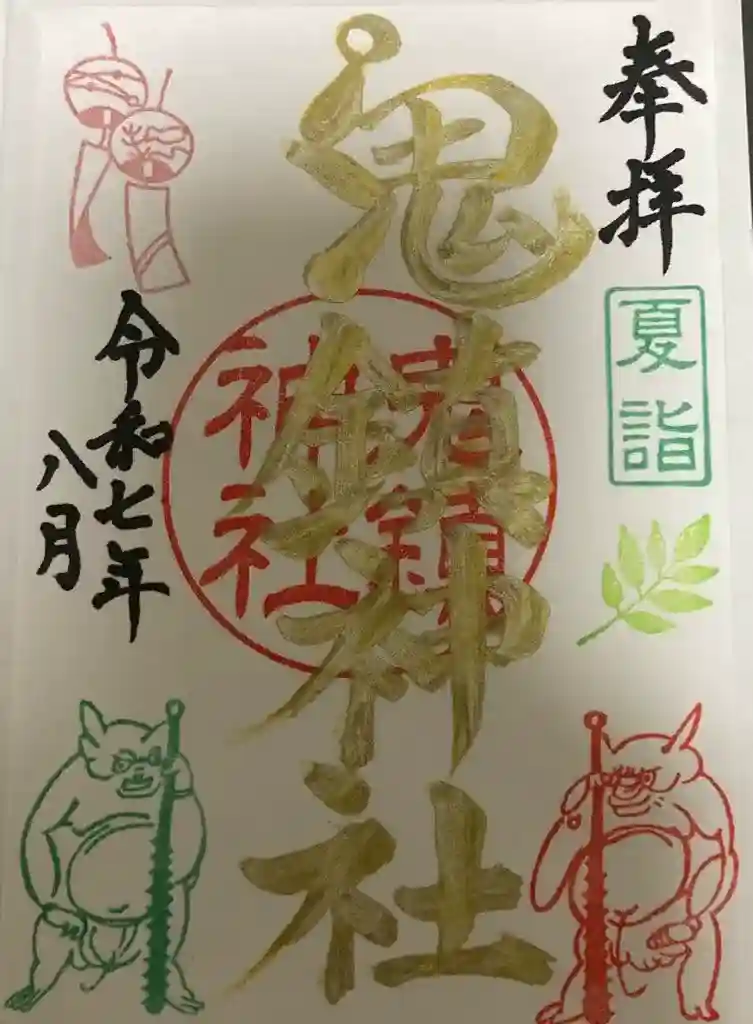 奉拝
夏詣
鬼鎮神社
鬼鎮
神社
令和七年
八月